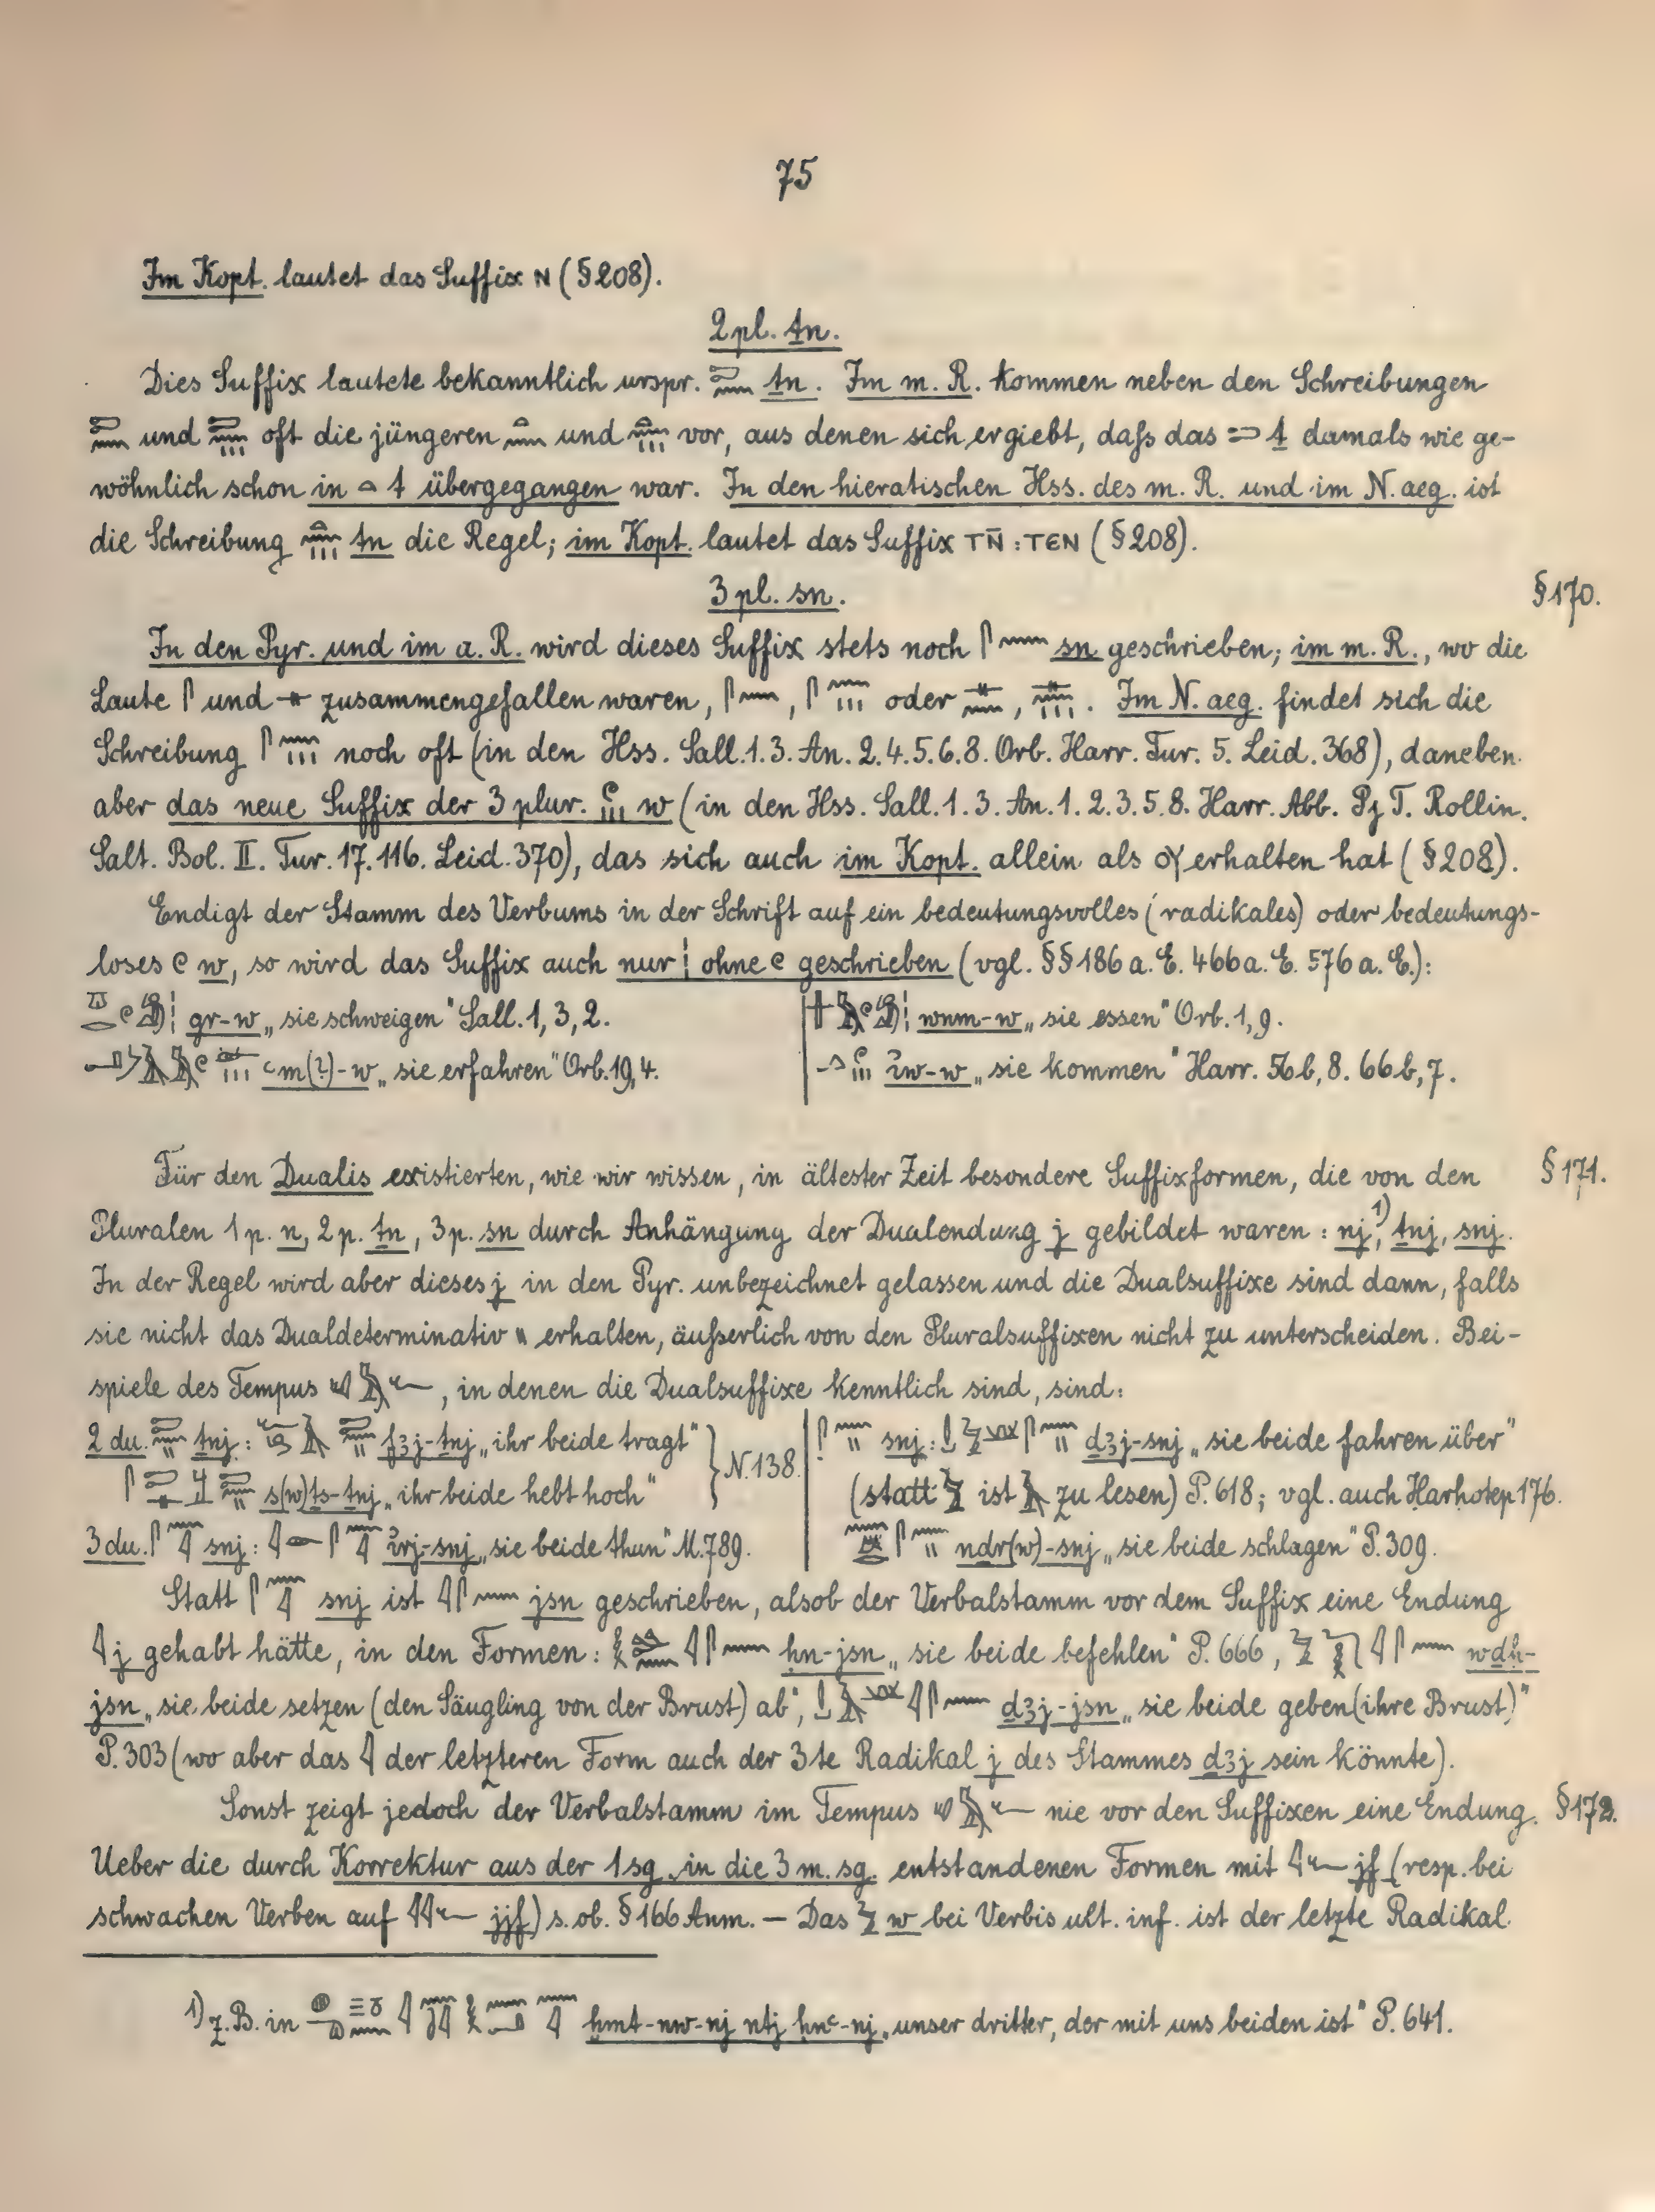 75
Im Kopt. lautet das Suffix ⲛ (§208).
2 pl. ṯn.
Dies Suffix lautete bekanntlich urspr. 𓍿𓈖 ṯn. Im m. R. kommen neben den Schreibungen
𓍿𓈖 und 𓍿𓈖𓏥 oft die jüngeren 𓏏𓈖 und 𓏏𓈖𓏥 vor, aus denen sich ergiebt, daſs das 𓍿 ṯ damals wie ge-
wöhnlich schon in 𓏏 t übergegangen war. In den hieratischen Hss. des m. R. und im N. aeg. ist
die Schreibung 𓏏𓈖𓏥 tn die Regel; im Kopt. lautet das Suffix ⲧⲛ̄ : ⲧⲉⲛ (§208).
3 pl. sn. §170.
In den Pyr. und im a. R. wird dieses Suffix stets noch 𓋴𓈖 sn geschrieben; im m. R., wo die
Laute 𓋴 und 𓊃 zusammengefallen waren, 𓋴𓈖, 𓋴𓈖𓏥 oder 𓊃𓈖, 𓊃𓈖𓏥. Im N. aeg. findet sich die
Schreibung 𓋴𓈖𓏥 noch oft (in den Hss. Sall. 1. 3. An. 2. 4. 5. 6. 8. Orb. Harr. Tur. 5. Leid. 368), daneben
aber das neue Suffix der 3 plur. 𓏲𓏥 w (in den Hss. Sall. 1. 3. An. 1. 2. 3. 5. 8. Harr. Abb. Pj T. Rollin.
Salt. Bol. II. Tur. 17. 116. Leid. 370), das sich auch im Kopt. allein als ⲟⲩ erhalten hat (§208).
Endigt der Stamm des Verbums in der Schrift auf ein bedeutungsvolles (radikales) oder bedeutungs-
loses 𓏲 w, so wird das Suffix auch nur ¦ ohne 𓏲 geschrieben (vgl. §§186 a. E. 466 a. E. 576 a. E.):
𓎼𓂋𓏲𓀁𓏥 gr-w „sie schweigen“ Sall. 1, 3, 2. 𓏶𓅓𓏲𓀁𓏥 wnm-w „sie essen“ Orb. 1, 9.
ꜥm(?)-w „sie erfahren“ Orb. 19, 4. 𓂻𓏲𓏥 ı͗w-w „sie kommen“ Harr. 56 b, 8. 66 b, 7.
Für den Dualis existierten, wie wir wissen, in ältester Zeit besondere Suffixformen, die von den §171.
Pluralen 1 p. n, 2 p. ṯn, 3 p. sn durch Anhängung der Dualendung j gebildet waren: nj,¹⁾ ṯnj, snj.
In der Regel wird aber dieses j in den Pyr. unbezeichnet gelassen und die Dualsuffixe sind dann, falls
sie nicht das Dualdeterminativ 𓏭 erhalten, äuſserlich von den Pluralsuffixen nicht zu unterscheiden. Bei-
spiele des Tempus 𓄔𓅓𓆑, in denen die Dualsuffixe kenntlich sind, sind:
2 du. 𓍿𓈖𓏭 ṯnj: fꜣj-ṯnj „ihr beide tragt“ } N. 138. 𓋴𓈖𓏭 snj: ḏꜣj-snj „sie beide fahren über“
s(w)ṯs-ṯnj „ihr beide hebt hoch“ (statt 𓅱 ist 𓄿 zu lesen) P. 618; vgl. auch Ḥarḥotep 176.
3 du. 𓋴𓈖𓇋 snj: 𓇋𓂋𓋴𓈖𓇋 ı͗rj-snj „sie beide thun“ M. 789. nḏr(w)-snj „sie beide schlagen“ P. 309.
Statt 𓋴𓈖𓇋 snj ist 𓇋𓋴𓈖 jsn geschrieben, alsob der Verbalstamm vor dem Suffix eine Endung
𓇋 j gehabt hätte, in den Formen: 𓎛𓈖𓇋𓋴𓈖 ḥn-jsn „sie beide befehlen“ P. 666, wdḥ-
jsn „sie beide setzen (den Säugling von der Brust) ab“, 𓇋𓋴𓈖 ḏꜣj-jsn „sie beide geben (ihre Brust)“
P. 303 (wo aber das 𓇋 der letzteren Form auch der 3te Radikal j des Stammes ḏꜣj sein könnte).
Sonst zeigt jedoch der Verbalstamm im Tempus 𓄔𓅓𓆑 nie vor den Suffixen eine Endung. §172.
Ueber die durch Korrektur aus der 1 sg. in die 3 m. sg. entstandenen Formen mit 𓇋𓆑 jf (resp. bei
schwachen Verben auf 𓇋𓇋𓆑 jjf) s. ob. §166 Anm. — Das 𓅱 w bei Verbis ult. inf. ist der letzte Radikal
1) z. B. in ḫmt-nw-nj ntj ḥnꜥ-nj „unser dritter, der mit uns beiden ist“ P. 641.